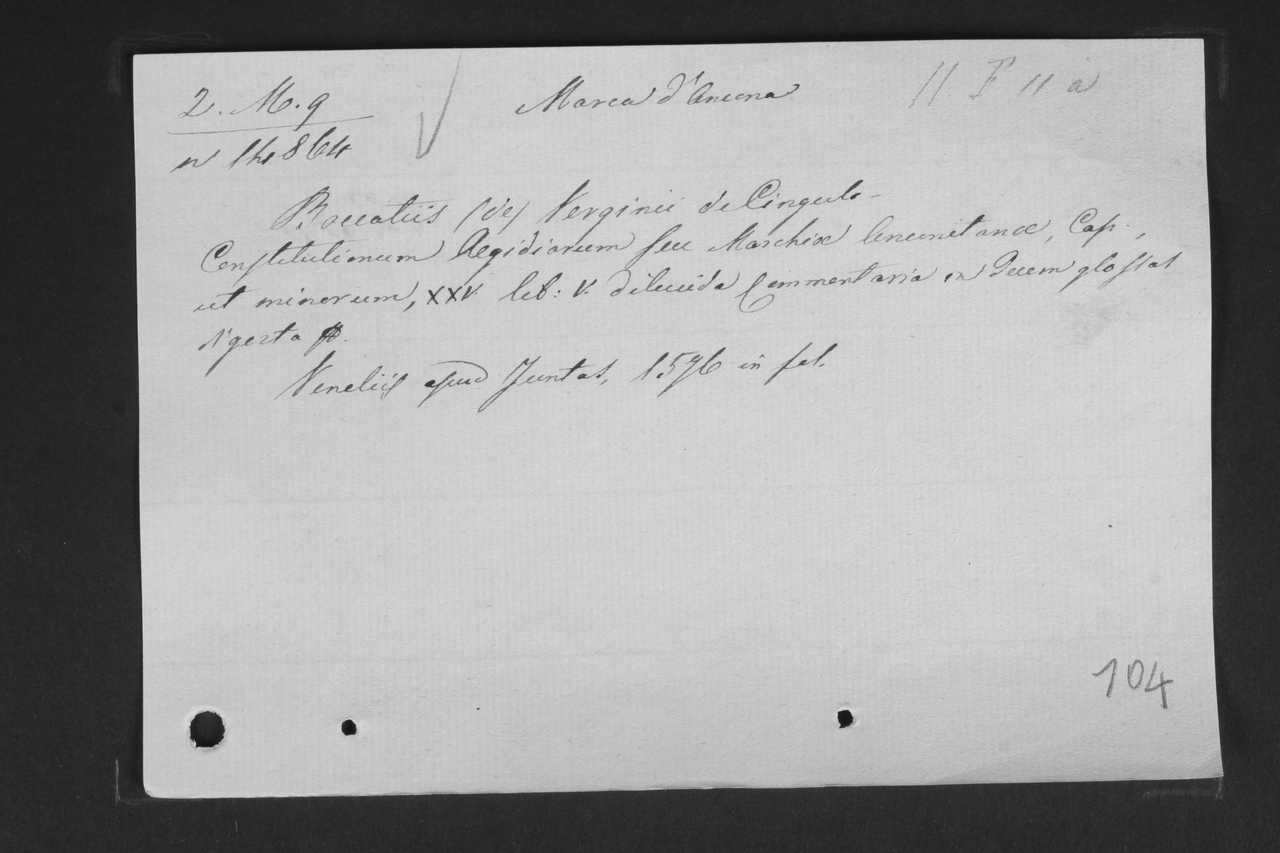 2. M. 9
n 14864
Marca d'Ancona
11 F 11 a
Boccatiis (de) Verginii de Cingulo -
Constitutionum Aegidiarum seu Marchiæ Anconitanæ, Cap.,
ut minorum, XXV lib: V. dilucida Commentaria in Quem glossas
digesta
Venetiis apud Juntas, 1576 in fol.
104